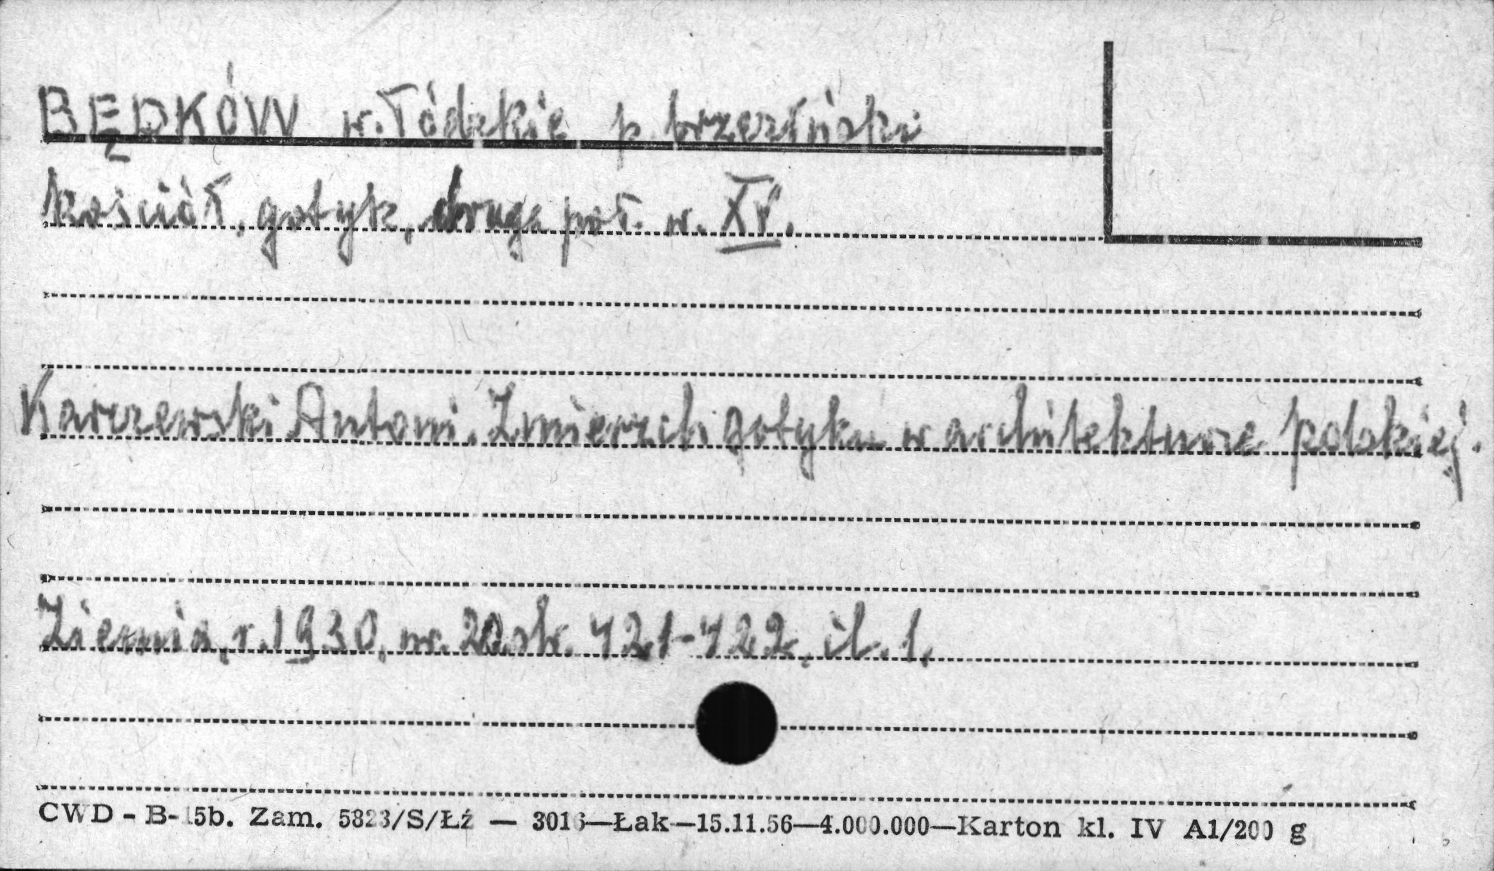 BĘDKÓW w. łódzkie p. brzeziński
kościół, gotyk, druga poł. w. XV.
Karczewski Antoni. Zmierzch gotyku w architekturze polskiej.
Ziemia, r. 1930, nr. 20. str. 421-422, il. 1.
CWD - B-15b. Zam. 5823/S/Łź — 3016—Łak—15.11.56—4.000.000—Karton kl. IV A1/200 g